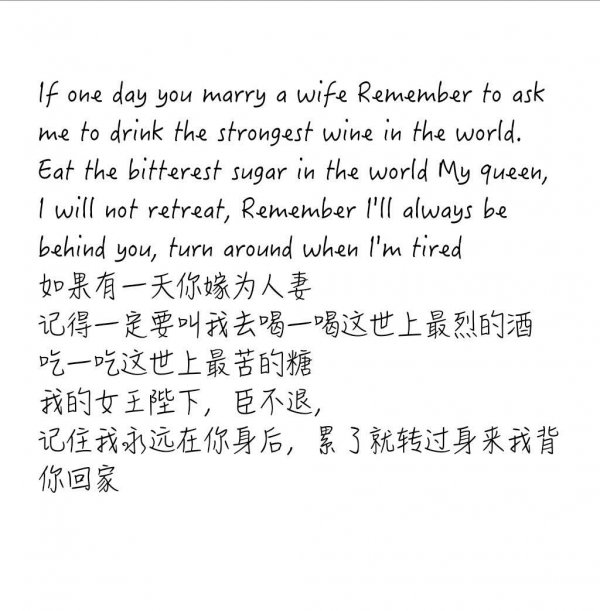 If one day you marry a wife Remember to ask
me to drink the strongest wine in the world.
Eat the bitterest sugar in the world My queen,
I will not retreat, Remember I'll always be
behind you, turn around when I'm tired
如果有一天你嫁为人妻
记得一定要叫我去喝一喝这世上最烈的酒
吃一吃这世上最苦的糖
我的女王陛下，臣不退，
记住我永远在你身后，累了就转过身来我背
你回家